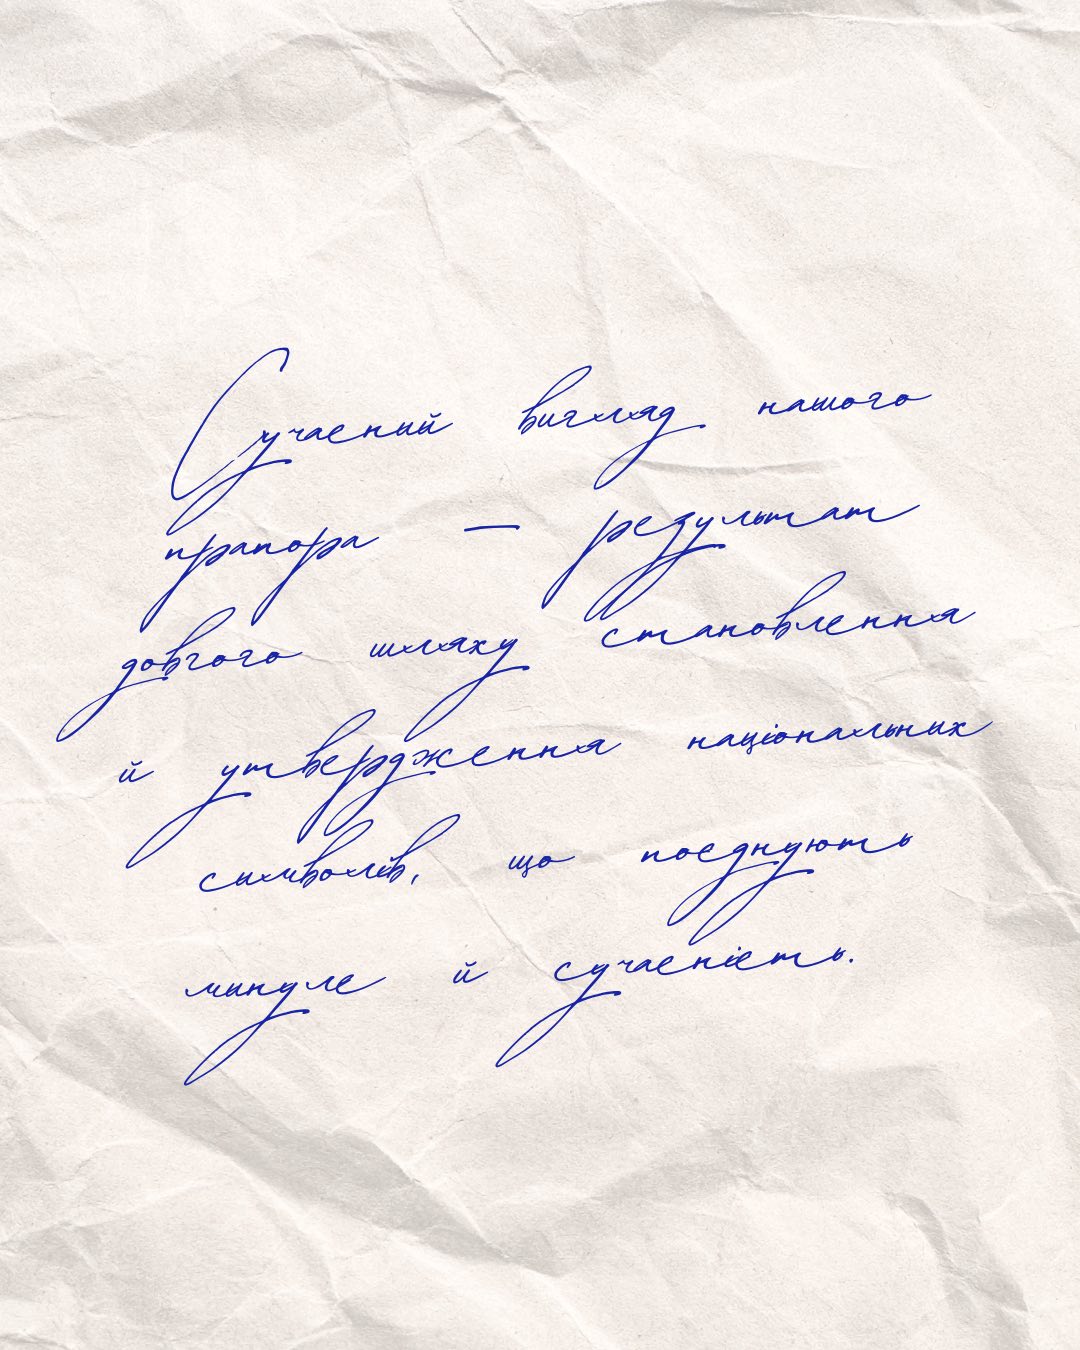 Сучасний вигляд нашого
прапора — результат
довгого шляху становлення
й утвердження національних
символів, що поєднують
минуле й сучасність.